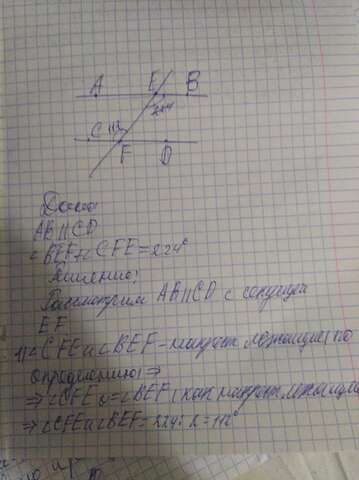 A E B
224
C 112
F D
Дано:
AB||CD
∠BEF+∠CFE=224°
Решение:
Рассмотрим AB||CD с секущей
EF
1) ∠CFE и ∠BEF - накрест лежащие (по
определению) ⇒
⇒ ∠CFE = ∠BEF (как накрест лежащие
⇒ ∠CFE и ∠BEF = 224:2=112°